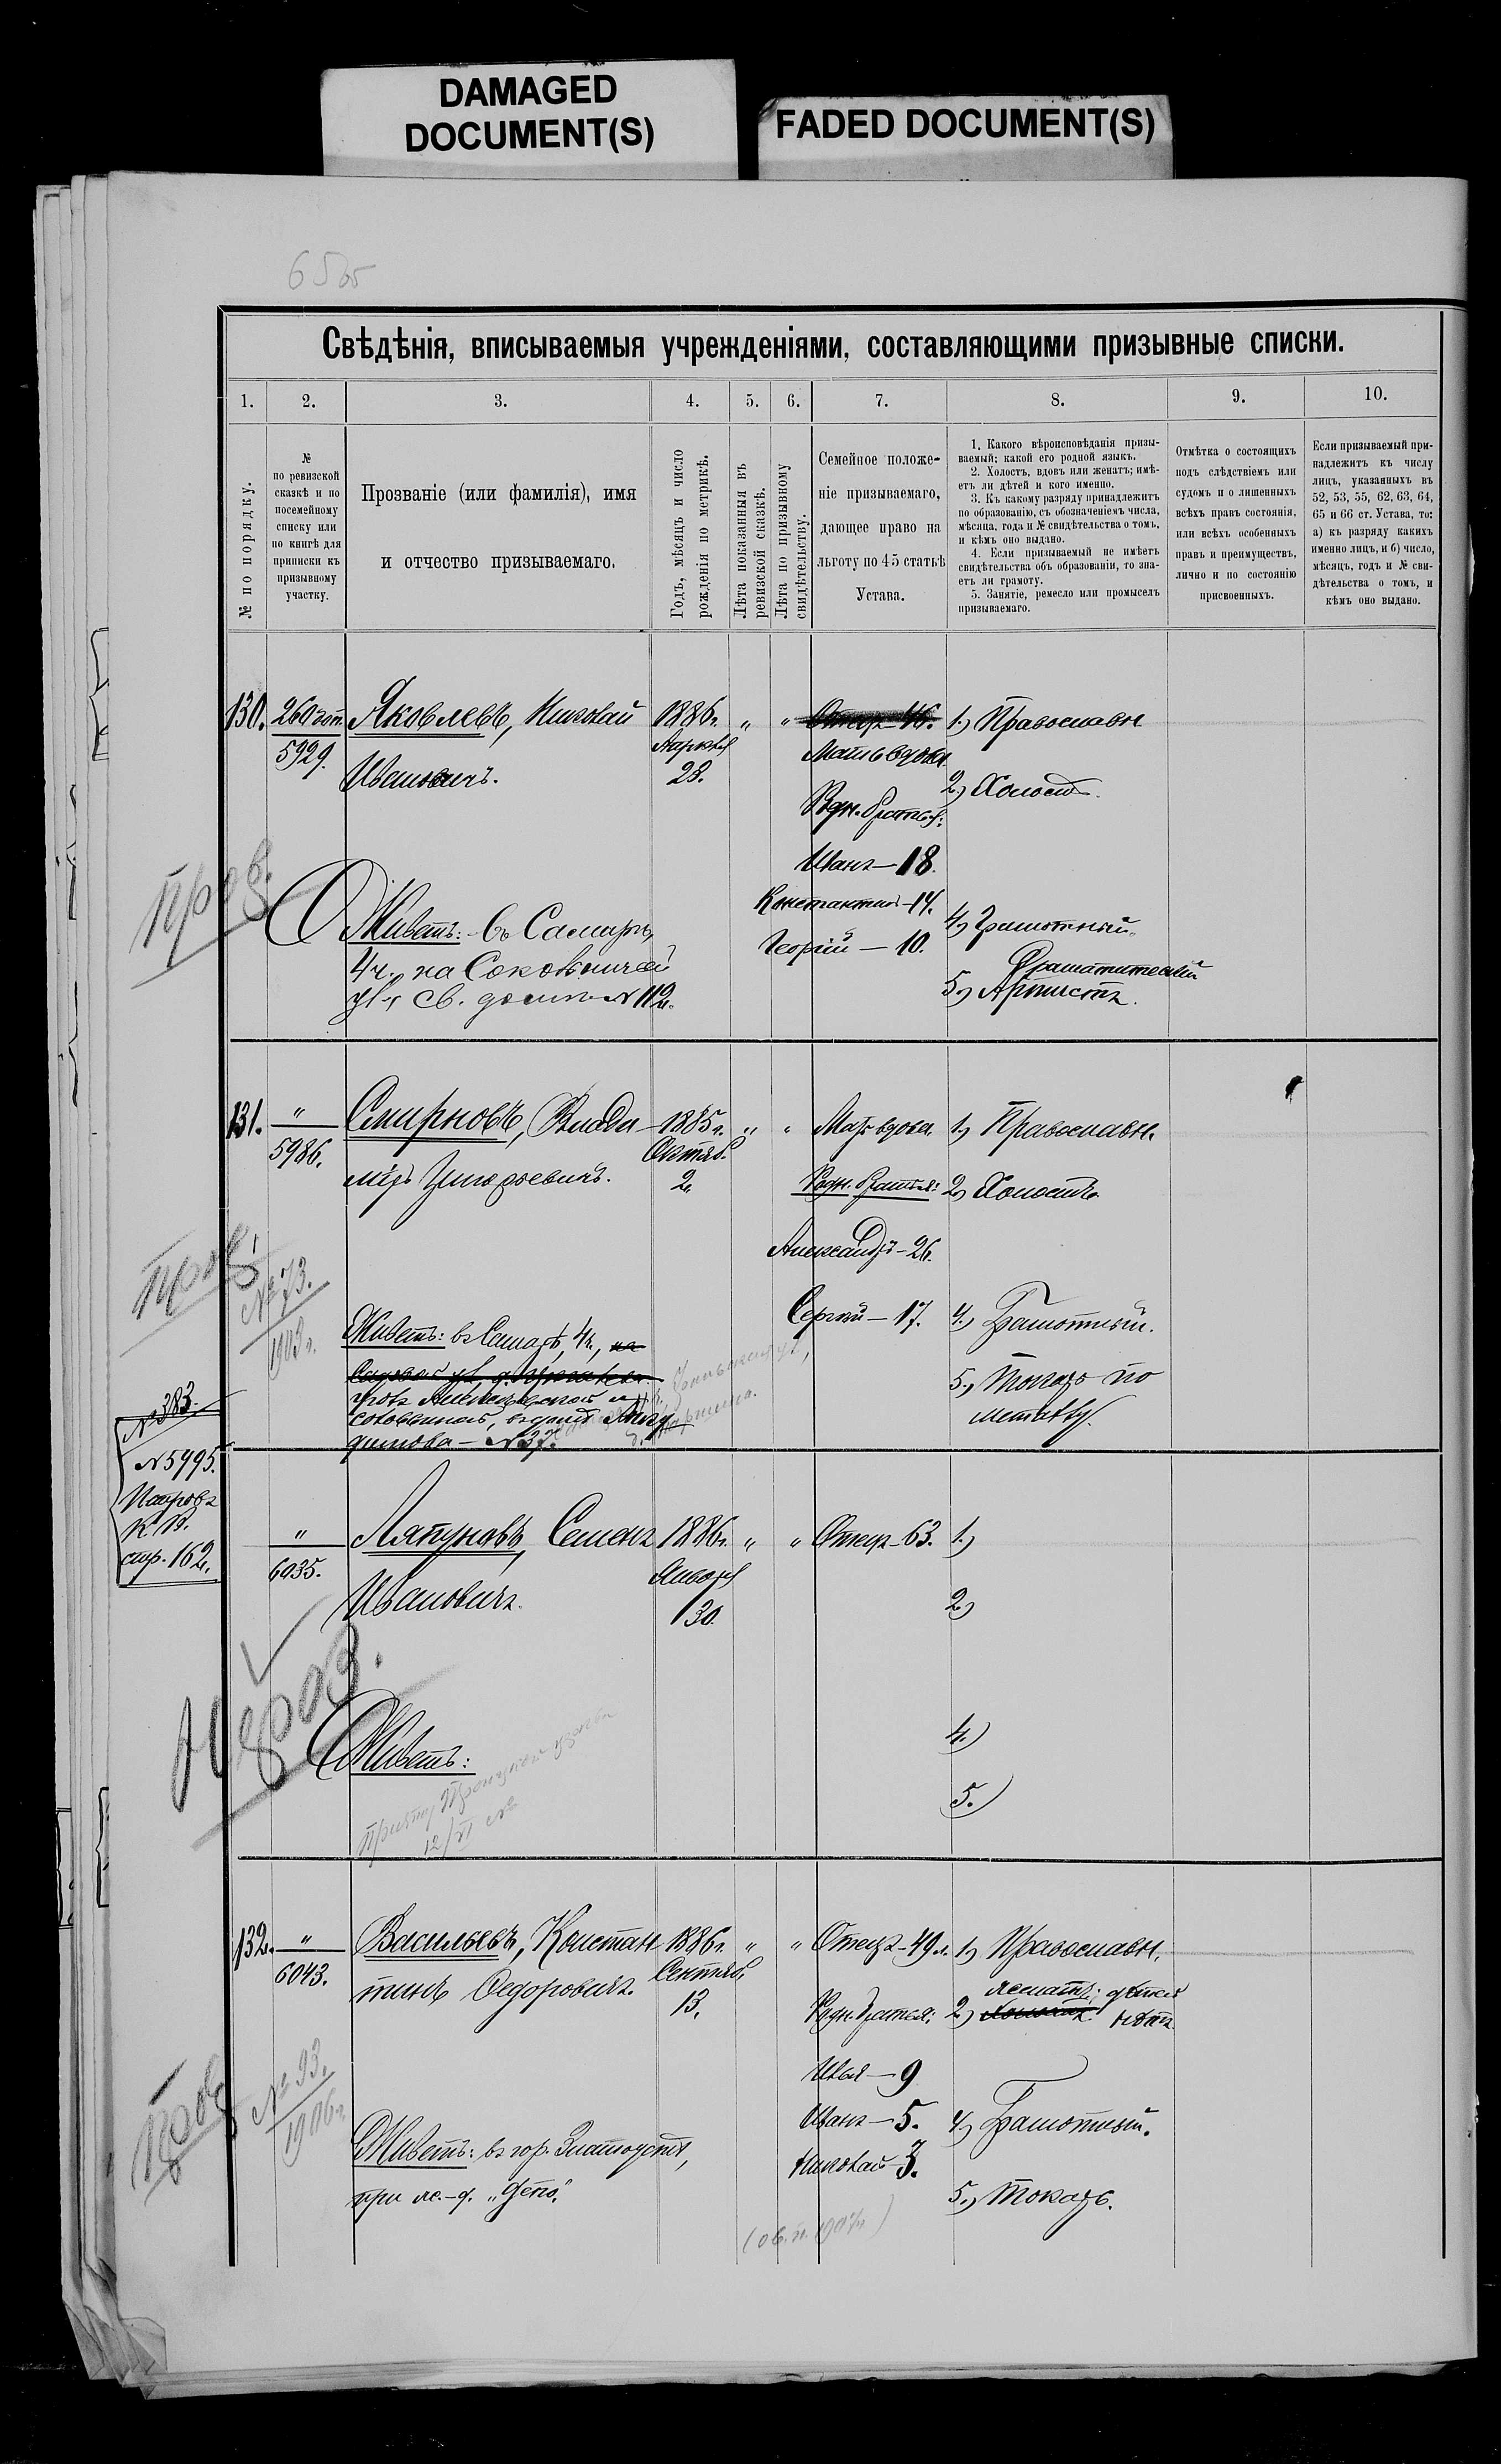 DAMAGED
DOCUMENT(S)
FADED DOCUMENT(S)
65 об
Свѣдѣнія, вписываемыя учрежденіями, составляющими призывные списки.
1.
2.
3.
4.
5.
6.
7.
8.
9.
10.
№ по порядку.
№
по ревизской
сказкѣ и по
посемейному
списку или
по книгѣ для
приписки къ
призывному
участку.
Прозваніе (или фамилія), имя
и отчество призываемаго.
Годъ, мѣсяцъ и число
рожденія по метрикѣ.
Лѣта показанныя въ
ревизской сказкѣ.
Лѣта по призывному
свидѣтельству.
Семейное положе-
ніе призываемаго,
дающее право на
льготу по 45 статьѣ
Устава.
1. Какого вѣроисповѣданія призы-
ваемый; какой его родной языкъ.
2. Холостъ, вдовъ или женатъ; имѣ-
етъ ли дѣтей и кого именно.
3. Къ какому разряду принадлежитъ
по образованію, съ обозначеніемъ числа,
мѣсяца, года и № свидѣтельства о томъ,
и кѣмъ оно выдано.
4. Если призываемый не имѣетъ
свидѣтельства объ образованіи, то зна-
етъ ли грамоту.
5. Занятіе, ремесло или промыселъ
призываемаго.
Отмѣтка о состоящихъ
подъ слѣдствіемъ или
судомъ и о лишенныхъ
всѣхъ правъ состоянія,
или всѣхъ особенныхъ
правъ и преимуществъ,
лично и по состоянію
присвоенныхъ.
Если призываемый при-
надлежитъ къ числу
лицъ, указанныхъ въ
52, 53, 55, 62, 63, 64,
65 и 66 ст. Устава, то:
а) къ разряду какихъ
именно лицъ, и б) число,
мѣсяцъ, годъ и № сви-
дѣтельства о томъ, и
кѣмъ оно выдано.
130.
5929.
Яковлевъ, Николай
Ивановичъ.
1886г.
Апрѣля
28.
" "
Отецъ-46.
Мать вдова
Родн. братья:
Иванъ-18.
Константинъ-14.
Георгій-10.
1.) Православн.
2.) Холостъ.
4.) Грамотный.
Драматическій
5.) Артистъ.
Живетъ: въ Самарѣ,
4ч. на Соловьиной
ул., св. домъ №112.
131.
"
5986.
Смирновъ, Влади-
міръ Григорьевичъ.
1885г.
Октяб.
2.
" "
Мать вдова.
Родн. братья:
Александръ-26.
Сергѣй-17.
1.) Православн.
2.) Холостъ.
4.) Грамотный.
5.) Токарь по
металлу.
№73.
1903г.
Живетъ: въ Самарѣ, 4ч., на
№37.
№383.
№5995.
К. В.
стр. 162.
"
6035.
Ляпуновъ, Семенъ
Ивановичъ.
1886г.
Января
30.
" "
Отецъ-63.
1.)
2.)
4.)
5.)
Живетъ:
132.
"
6043.
Васильевъ, Констан-
тинъ Ѳедоровичъ.
1886г.
Сентяб.
13.
" "
Отецъ-49л.
Родн. братья:
Илья-9
Иванъ-5.
Николай-3.
1.) Православн.
женатъ; дѣтей
2.) Холостъ. нѣтъ
4.) Грамотный.
5.) Токарь.
№93.
1906г.
Живетъ: въ гор. Златоустѣ,
при ж.-д. „Депо".